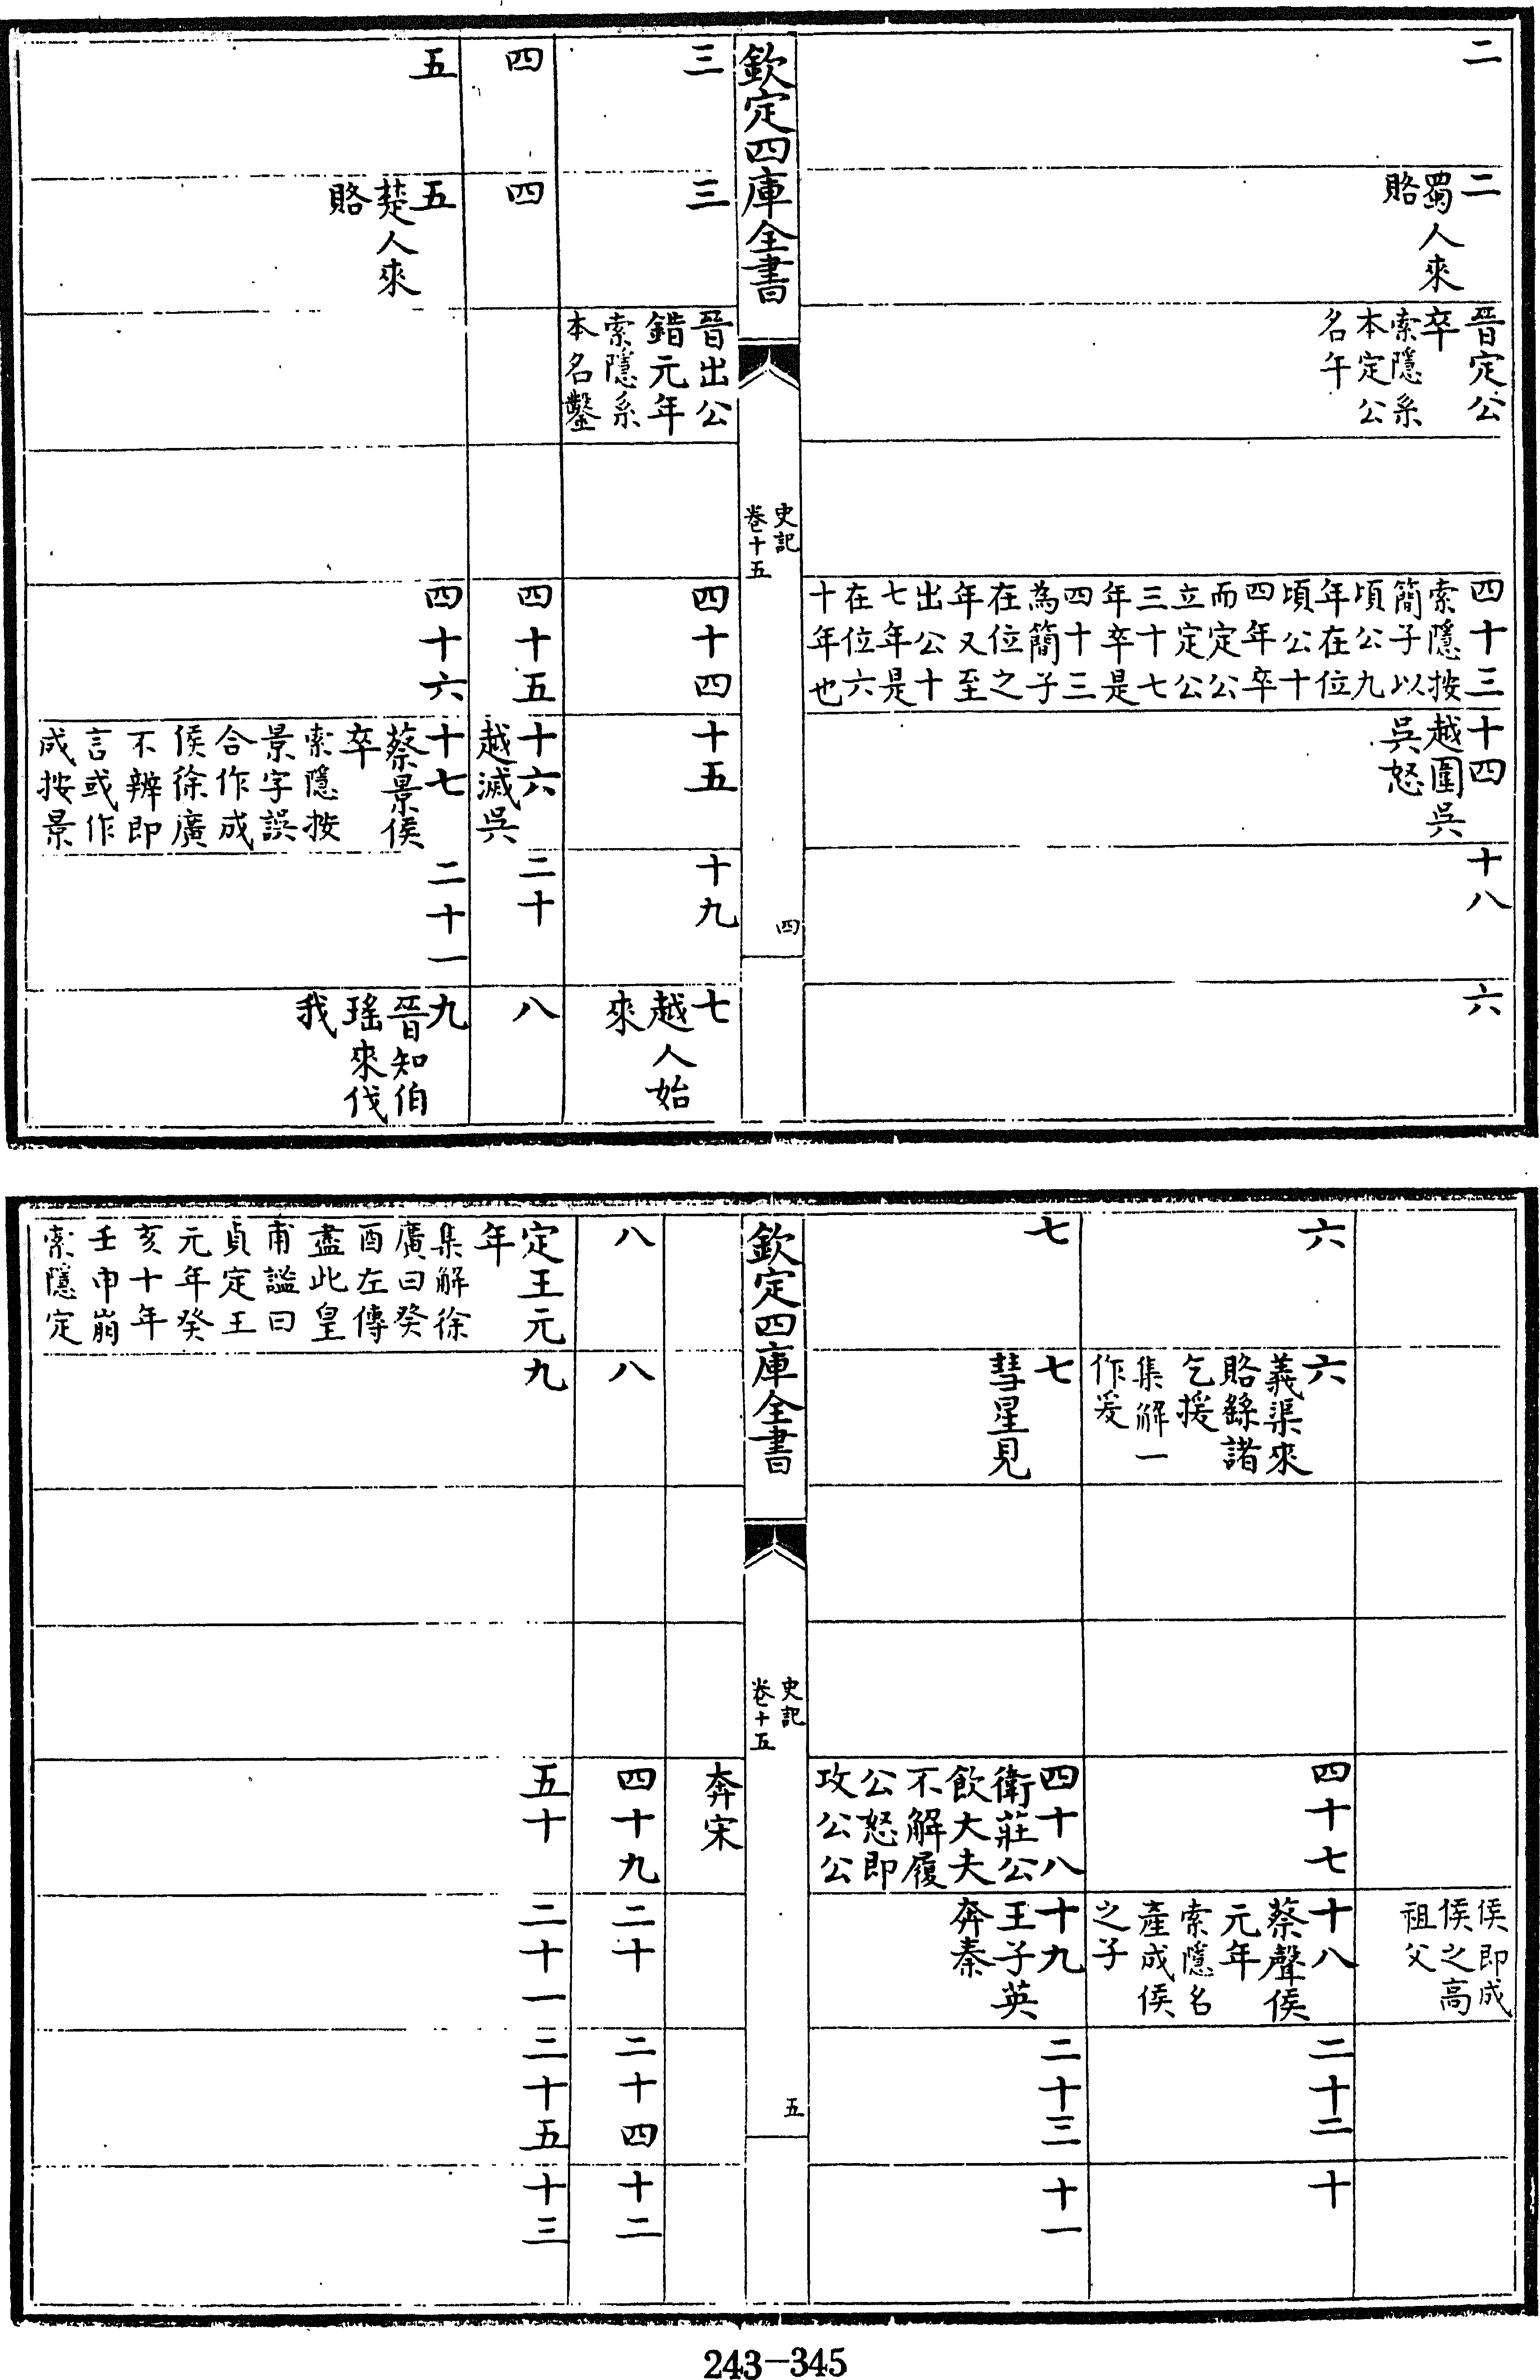 二
二
蜀人來
賂
晉定公
卒
索隱系
本定公
名午
四十三
索隱按
簡子以
頃公九
年在位
頃公十
四年卒
而定公
立定公
三十七
年卒是
四十三
為簡子
在位之
年又至
出公十
七年是
在位六
十年也
十四
越圍吳
吳怒
十八
六
欽定四庫全書
史記
卷十五
四
三
三
晉出公
錯元年
索隱系
本名鑿
四十四
十五
十九
七
越人始
來
四
四
四十五
十六
越滅吳
二十
八
五
五
楚人來
賂
四十六
十七
蔡景侯
卒
索隱按
景字誤
合作成
侯徐廣
不辨即
言或作
成按景
二十一
九
晉知伯
瑤來伐
我
侯即成
侯之高
祖父
六
六
義渠來
賂繇諸
乞援
集解一
作爰
四十七
十八
蔡聲侯
元年
索隱名
產成侯
之子
二十二
十
七
七
彗星見
四十八
衛莊公
飲大夫
不解履
公怒即
攻公公
十九
王子英
奔秦
二十三
十一
欽定四庫全書
史記
卷十五
五
奔宋
八
八
四十九
二十
二十四
十二
定王元
年
集解徐
廣曰癸
酉左傳
盡此皇
甫謐曰
貞定王
元年癸
亥十年
壬申崩
索隱定
九
五十
二十一
二十五
十三
243-345